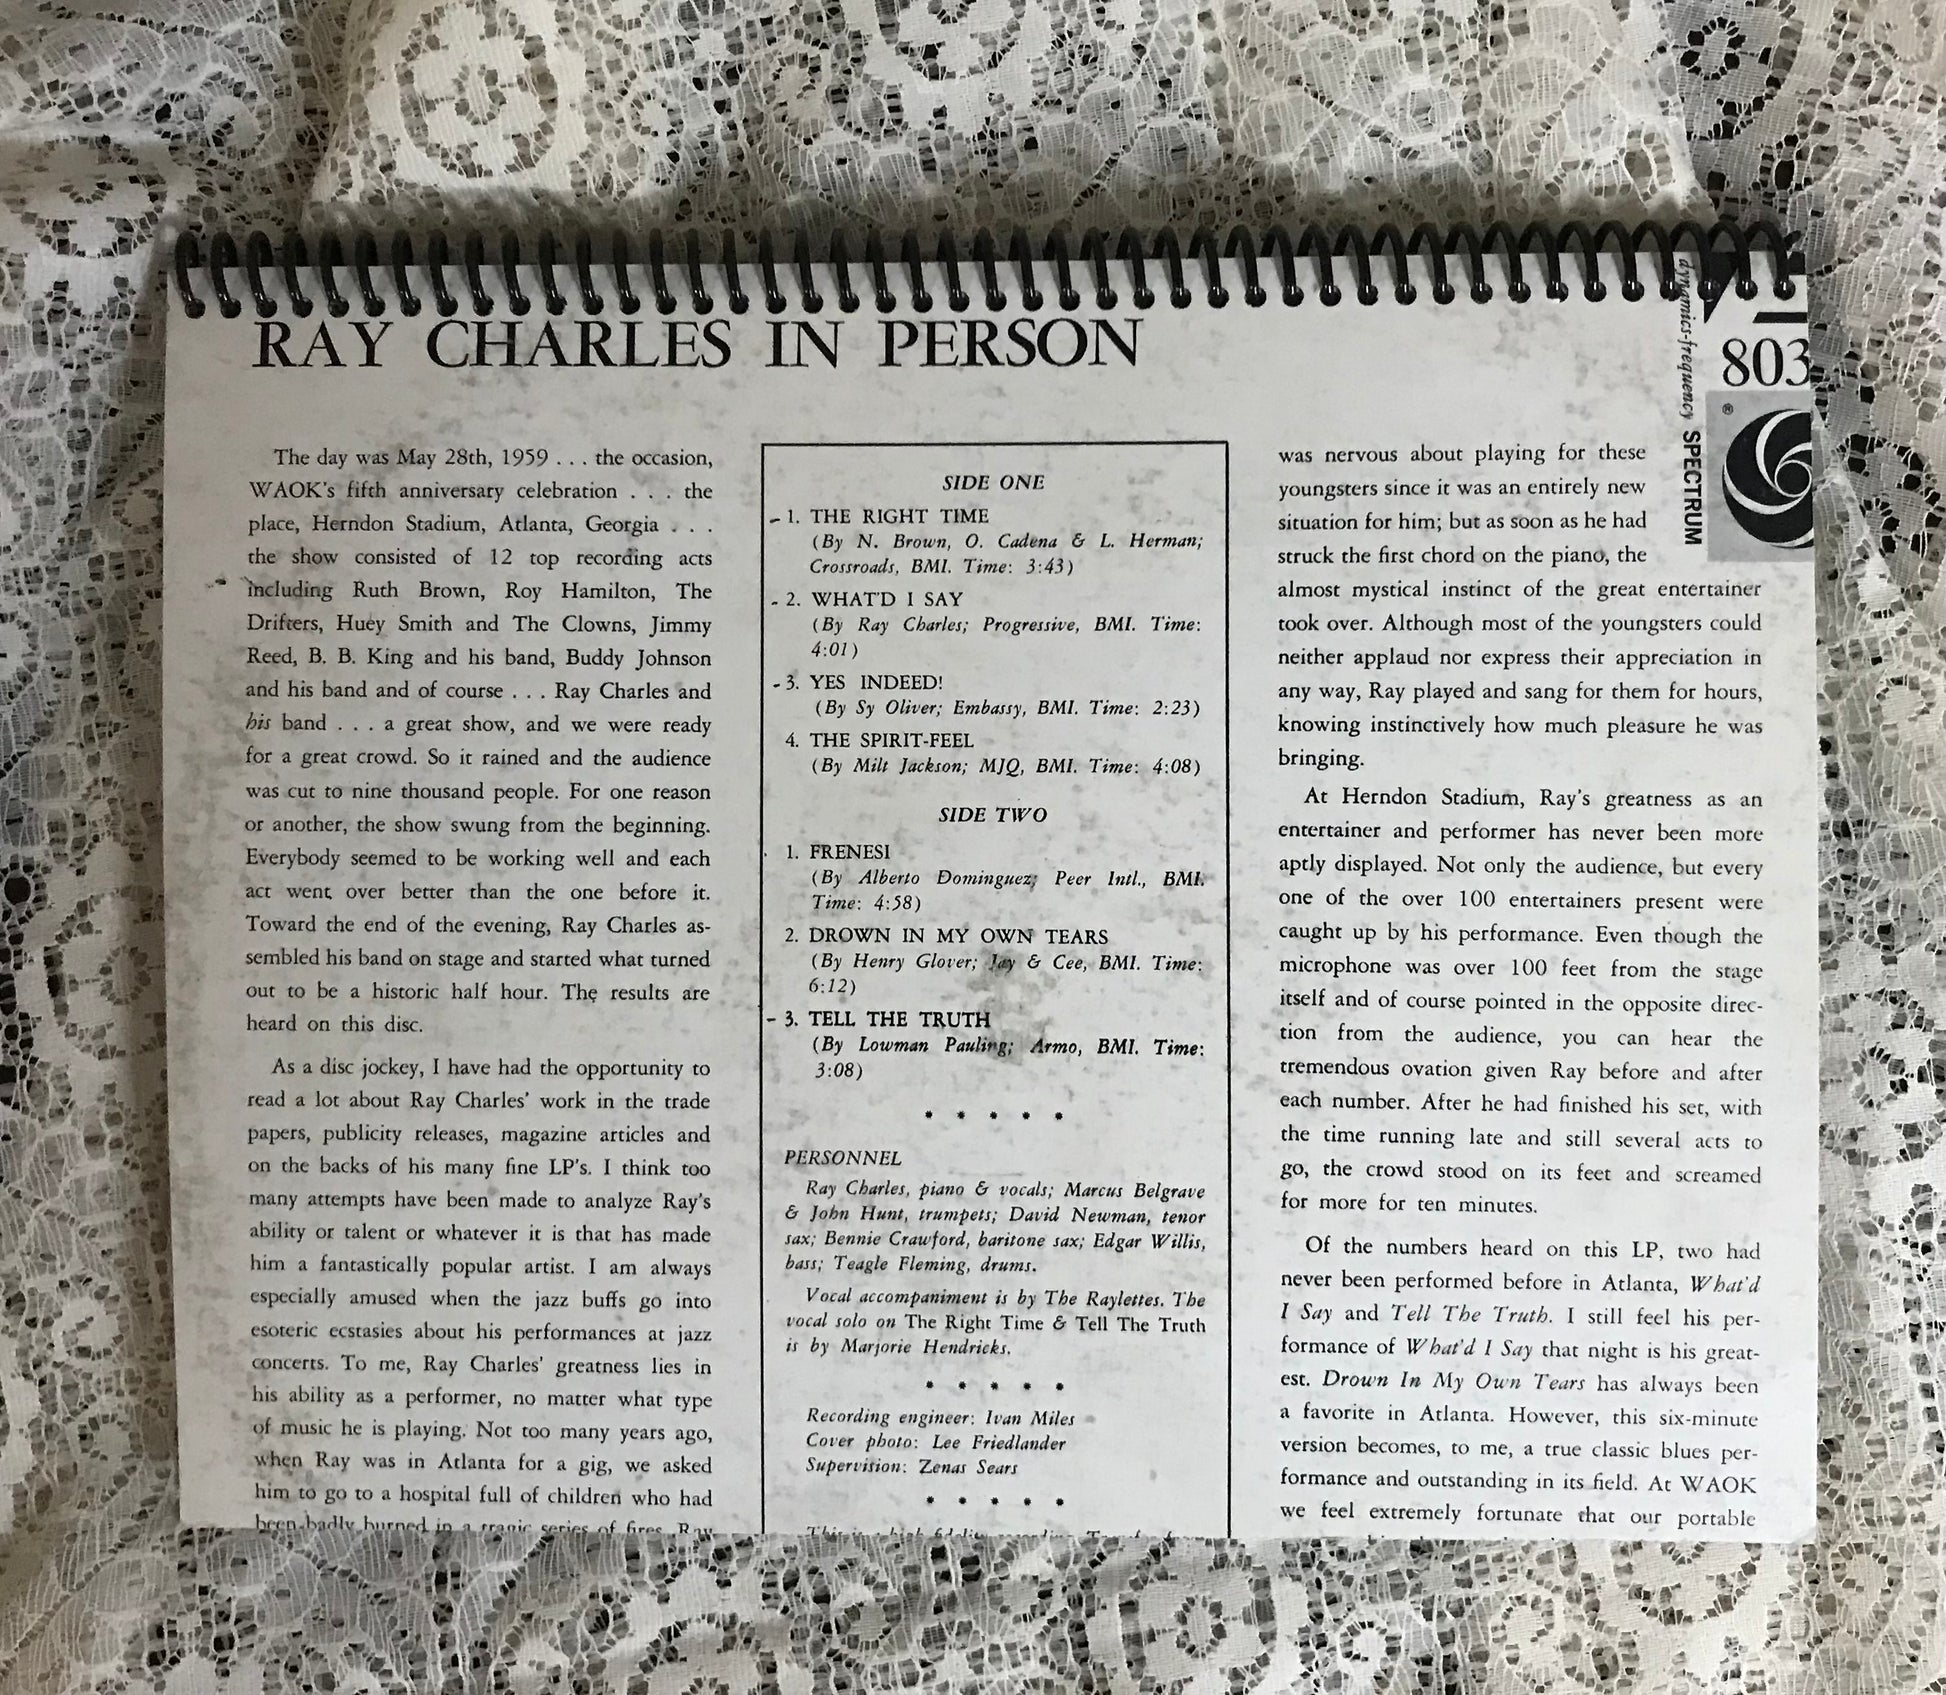 RAY CHARLES IN PERSON
The day was May 28th, 1959 . . . the occasion,
WAOK's fifth anniversary celebration . . . the
place, Herndon Stadium, Atlanta, Georgia . . .
the show consisted of 12 top recording acts
including Ruth Brown, Roy Hamilton, The
Drifters, Huey Smith and The Clowns, Jimmy
Reed, B. B. King and his band, Buddy Johnson
and his band and of course . . . Ray Charles and
his band . . . a great show, and we were ready
for a great crowd. So it rained and the audience
was cut to nine thousand people. For one reason
or another, the show swung from the beginning.
Everybody seemed to be working well and each
act went over better than the one before it.
Toward the end of the evening, Ray Charles as-
sembled his band on stage and started what turned
out to be a historic half hour. The results are
heard on this disc.
As a disc jockey, I have had the opportunity to
read a lot about Ray Charles' work in the trade
papers, publicity releases, magazine articles and
on the backs of his many fine LP's. I think too
many attempts have been made to analyze Ray's
ability or talent or whatever it is that has made
him a fantastically popular artist. I am always
especially amused when the jazz buffs go into
esoteric ecstasies about his performances at jazz
concerts. To me, Ray Charles' greatness lies in
his ability as a performer, no matter what type
of music he is playing. Not too many years ago,
when Ray was in Atlanta for a gig, we asked
him to go to a hospital full of children who had
been badly burned in a tragic series of fires. Ray
SIDE ONE
1. THE RIGHT TIME
(By N. Brown, O. Cadena & L. Herman;
Crossroads, BMI. Time: 3:43)
2. WHAT'D I SAY
(By Ray Charles; Progressive, BMI. Time:
4:01)
3. YES INDEED!
(By Sy Oliver; Embassy, BMI. Time: 2:23)
4. THE SPIRIT-FEEL
(By Milt Jackson; MJQ, BMI. Time: 4:08)
SIDE TWO
1. FRENESI
(By Alberto Dominguez; Peer Intl., BMI.
Time: 4:58)
2. DROWN IN MY OWN TEARS
(By Henry Glover; Jay & Cee, BMI. Time:
6:12)
3. TELL THE TRUTH
(By Lowman Pauling; Armo, BMI. Time:
3:08)
* * * * *
PERSONNEL
Ray Charles, piano & vocals; Marcus Belgrave
& John Hunt, trumpets; David Newman, tenor
sax; Bennie Crawford, baritone sax; Edgar Willis,
bass; Teagle Fleming, drums.
Vocal accompaniment is by The Raylettes. The
vocal solo on The Right Time & Tell The Truth
is by Marjorie Hendricks.
* * * * *
Recording engineer: Ivan Miles
Cover photo: Lee Friedlander
Supervision: Zenas Sears
* * * * *
This is a high fidelity recording.
was nervous about playing for these
youngsters since it was an entirely new
situation for him; but as soon as he had
struck the first chord on the piano, the
almost mystical instinct of the great entertainer
took over. Although most of the youngsters could
neither applaud nor express their appreciation in
any way, Ray played and sang for them for hours,
knowing instinctively how much pleasure he was
bringing.
At Herndon Stadium, Ray's greatness as an
entertainer and performer has never been more
aptly displayed. Not only the audience, but every
one of the over 100 entertainers present were
caught up by his performance. Even though the
microphone was over 100 feet from the stage
itself and of course pointed in the opposite direc-
tion from the audience, you can hear the
tremendous ovation given Ray before and after
each number. After he had finished his set, with
the time running late and still several acts to
go, the crowd stood on its feet and screamed
for more for ten minutes.
Of the numbers heard on this LP, two had
never been performed before in Atlanta, What'd
I Say and Tell The Truth. I still feel his per-
formance of What'd I Say that night is his great-
est. Drown In My Own Tears has always been
a favorite in Atlanta. However, this six-minute
version becomes, to me, a true classic blues per-
formance and outstanding in its field. At WAOK
we feel extremely fortunate that our portable
dynamics-frequency SPECTRUM
803
®